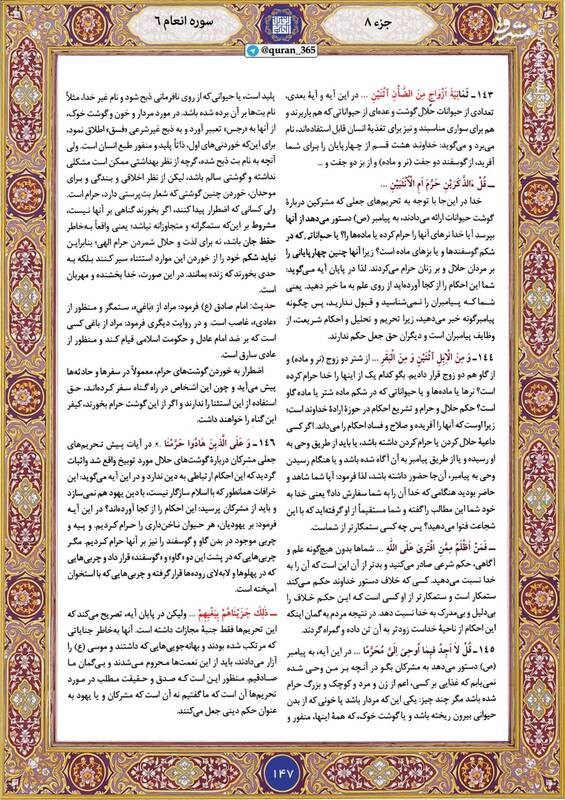 جزء ۸
سوره انعام ۶
@quran_365
۱۴۳ـ ثَمَانِيَةَ أَزْوَاجٍ مِنَ الضَّأْنِ اثْنَيْنِ ... در این آیه و آیهٔ بعدی،
تعدادی از حیوانات حلال گوشت و عده‌ای از حیواناتی که هم باربرند و
هم برای سواری مناسبند و نیز برای تغذیهٔ انسان قابل استفاده‌اند، نام
می‌برد و می‌گوید: خداوند هشت قسم از چهارپایان را برای شما
آفرید، از گوسفند دو جفت (نر و ماده) و از بز دو جفت و ...
ـ قُلْ ءَالذَّكَرَيْنِ حَرَّمَ اَمِ الْاُنْثَيَيْنِ ...
خدا در این‌جا با توجه به تحریم‌های جعلی که مشرکین دربارهٔ
گوشت حیوانات ارائه می‌دادند، به پیامبر (ص) دستور می‌دهد از آنها
بپرسد آیا خدا نرهای آنها را حرام کرده یا ماده‌ها را؟ یا حیواناتی که در
شکم گوسفندها و یا بزهای ماده است؟ زیرا آنها چنین چهارپایانی را
بر مردان حلال و بر زنان حرام می‌کردند. لذا در پایان آیه می‌گوید:
شما این احکام را از کجا آورده‌اید از روی علم به ما خبر دهید. یعنی
شما که پیامبران را نمی‌شناسید و قبول ندارید، پس چگونه
پیامبرگونه خبر می‌دهید، زیرا تحریم و تحلیل و احکام شریعت، از
وظایف پیامبران است و دیگران حق جعل حکم ندارند.
۱۴۴ـ وَ مِنَ الْاِبِلِ اثْنَيْنِ وَ مِنَ الْبَقَرِ ... از شتر دو زوج (نر و ماده) و
از گاو هم دو زوج قرار دادیم. بگو کدام یک از اینها را خدا حرام کرده
است؟ نرها یا ماده‌ها و یا حیواناتی که در شکم ماده شتر یا ماده گاو
است؟ حکم حلال و حرام و تشریع احکام در حوزهٔ ارادهٔ خداوند است؛
زیرا اوست که آنها را آفریده و صلاح و فساد احکام را می‌داند. اگر کسی
داعیهٔ حلال کردن یا حرام کردن داشته باشد، یا باید از طریق وحی به
او رسیده و یا از طریق پیامبر به آن آگاه شده باشد و یا هنگام رسیدن
وحی به پیامبر، آن‌جا حضور داشته باشد، لذا فرمود: آیا شما شاهد و
حاضر بودید هنگامی که خدا آن را به شما سفارش داد؟ یعنی خدا به
خود شما این مطالب را گفته و شما مستقیماً از او گرفته‌اید که با این
شجاعت فتوا می‌دهید؟ پس چه کسی ستمکارتر از شماست.
ـ فَمَنْ اَظْلَمُ مِمَّنِ افْتَرَىٰ عَلَى اللّٰهِ ... شماها بدون هیچ‌گونه علم و
آگاهی، حکم شرعی صادر می‌کنید و بدتر از آن این است که آن را به
خدا نسبت می‌دهید. کسی که خلاف دستور خداوند حکم می‌کند
ستمکار است و ستمکارتر از او کسی است که این حکم خلاف را
بی‌دلیل و بی‌مدرک به خدا نسبت دهد. در نتیجه مردم به گمان اینکه
این احکام از ناحیهٔ خداست زودتر به آن تن داده و گمراه گردند.
۱۴۵ـ قُلْ لَا اَجِدُ فِيمَا اُوحِيَ اِلَيَّ مُحَرَّمًا ... در این آیه، به پیامبر
(ص) دستور می‌دهد به مشرکان بگو در آنچه بر من وحی شده
نمی‌یابم که غذایی بر کسی، اعم از زن و مرد و کوچک و بزرگ حرام
شده باشد مگر چند چیز: یکی این که مردار باشد یا خونی که از بدن
حیوانی بیرون ریخته باشد و یا گوشت خوک، که همهٔ اینها، منفور و
پلید است، یا حیوانی که از روی نافرمانی ذبح شود و نام غیر خدا، مثلاً
نام بت‌ها بر آن برده شده باشد. در مورد مردار و خون و گوشت خوک،
از آنها به «رجس» تعبیر آورد و به ذبح غیرشرعی «فسق» اطلاق نمود،
برای این‌که خوردنی‌های اول، ذاتاً پلید و منفور طبع انسان است. ولی
آنچه به نام بت ذبح شده، گرچه از نظر بهداشتی ممکن است مشکلی
نداشته و گوشتی سالم باشد، لیکن از نظر اخلاقی و بندگی و برای
موحدان، خوردن چنین گوشتی که شعار بت‌پرستی دارد، حرام است.
ولی کسانی که اضطرار پیدا کنند، اگر بخورند گناهی بر آنها نیست،
مشروط بر این‌که ستمگرانه و متجاوزانه نباشد؛ یعنی واقعاً به‌خاطر
حفظ جان باشد، نه برای لذت و حلال شمردن حرام الهی؛ بنابراین
نباید شکم خود را از خوردن این موارد استثناء سیر کنند بلکه به
حدی بخورند که زنده بمانند. در این صورت، خدا بخشنده و مهربان
است.
حدیث: امام صادق (ع) فرمود: مراد از «باغی»، ستمگر و منظور از
«عادی»، غاصب است. و در روایت دیگری فرمود: مراد از باغی کسی
است که بر ضد امام عادل و حکومت اسلامی قیام کند و منظور از
عادی سارق است.
اضطرار به خوردن گوشت‌های حرام، معمولاً در سفرها و حادثه‌ها
پیش می‌آید و چون این اشخاص در راه گناه سفر کرده‌اند، حق
استفاده از این استثنا را ندارند و اگر از این گوشت حرام بخورند، کیفر
این گناه را خواهند داشت.
۱۴۶ـ وَ عَلَى الَّذِينَ هَادُوا حَرَّمْنَا ... در آیات پیش تحریم‌های
جعلی مشرکان دربارهٔ گوشت‌های حلال مورد توبیخ واقع شد و اثبات
گردید که این احکام ارتباطی به دین ندارد و در این آیه می‌گوید: این
خرافات همانطور که با اسلام سازگار نیست، با دین یهود هم نمی‌سازد
و باید از مشرکان پرسید: این احکام را از کجا آورده‌اند؟ در این آیه
فرمود: بر یهودیان، هر حیوان ناخن‌داری را حرام کردیم. و پیه و
چربی موجود در بدن گاو و گوسفند را نیز بر آنها حرام کردیم. مگر
چربی‌هایی که در پشت این دو «گاو» و «گوسفند» قرار داد و چربی‌هایی
که در پهلوها و لابه‌لای روده‌ها قرار گرفته و چربی‌هایی که با استخوان
آمیخته است.
ـ ذٰلِكَ جَزَيْنَاهُمْ بِبَغْيِهِمْ ... ولیکن در پایان آیه، تصریح می‌کند که
این تحریم‌ها فقط جنبهٔ مجازات داشته است. آنها به‌خاطر جنایاتی
که مرتکب شده بودند و بهانه‌جویی‌هایی که داشتند و موسی (ع) را
آزار می‌دادند، باید از این نعمت‌ها محروم می‌شدند و بی‌گمان ما
صادقیم. منظور این است که صدق و حقیقت مطلب در مورد
تحریم‌ها آن است که ما گفتیم نه آن است که مشرکان و یا یهود به
عنوان حکم دینی جعل می‌کنند.
۱۴۷